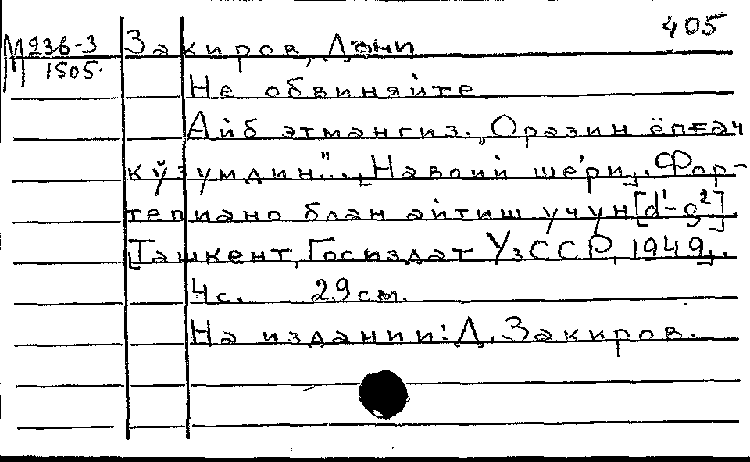 405
М 236-3 Закиров, Дони
1505.
Не обвиняйте
Айб этмангиз. „Оразин ёпғач
кўзумдин"... [Навоий шеъри]. Фор-
тепиано блан айтиш учун [d¹-g²]
[Ташкент, Госиздат УзССР, 1949].
4с. 29 см.
На издании: Д. Закиров.